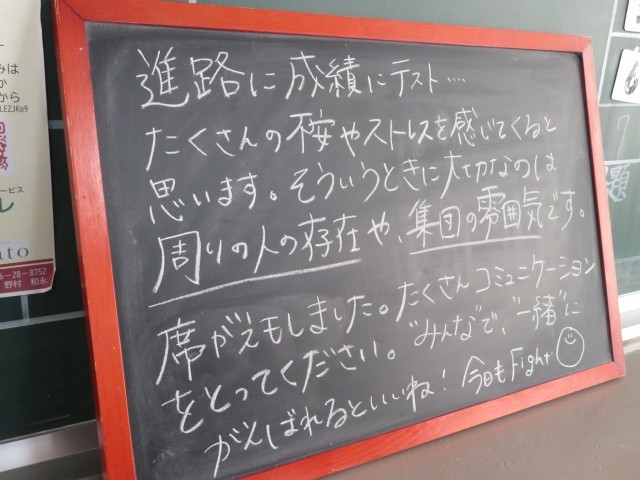 進路に成績にテスト....
たくさんの不安やストレスを感じてくると
思います。そういうときに大切なのは
周りの人の存在や、集団の雰囲気です。
席がえもしました。たくさんコミュニケーション
をとってください。"みんな"で、"一緒"に
がんばれるといいね！ 今日もFight
みは
か
から
LEZJK09
サービス
レ
ato
6-28-8752
野村 和永